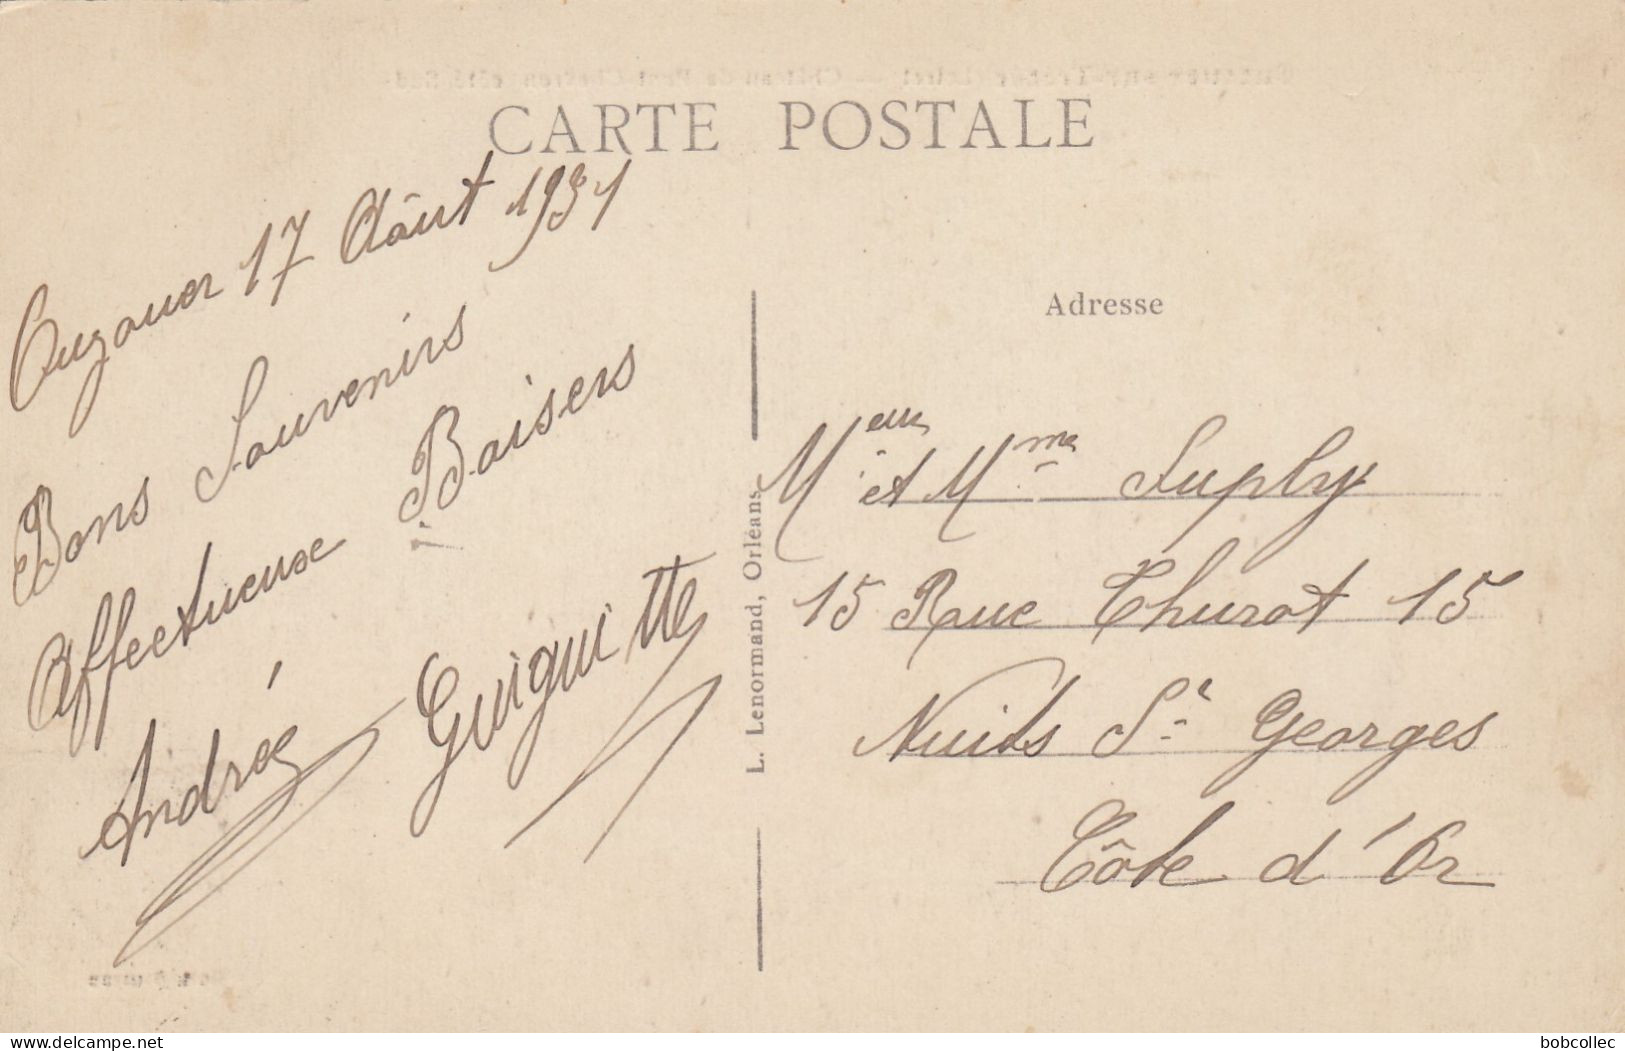 CARTE POSTALE
Ouzouer 17 Aôut 1931
Bons Souvenirs
Affectueuse Baisers
Andrée Guiguitte
L. Lenormand, Orléans
Adresse
Meur et Mme Suply
15 Rue Thurot 15
Nuits St Georges
Côte d'Or
bobcollec